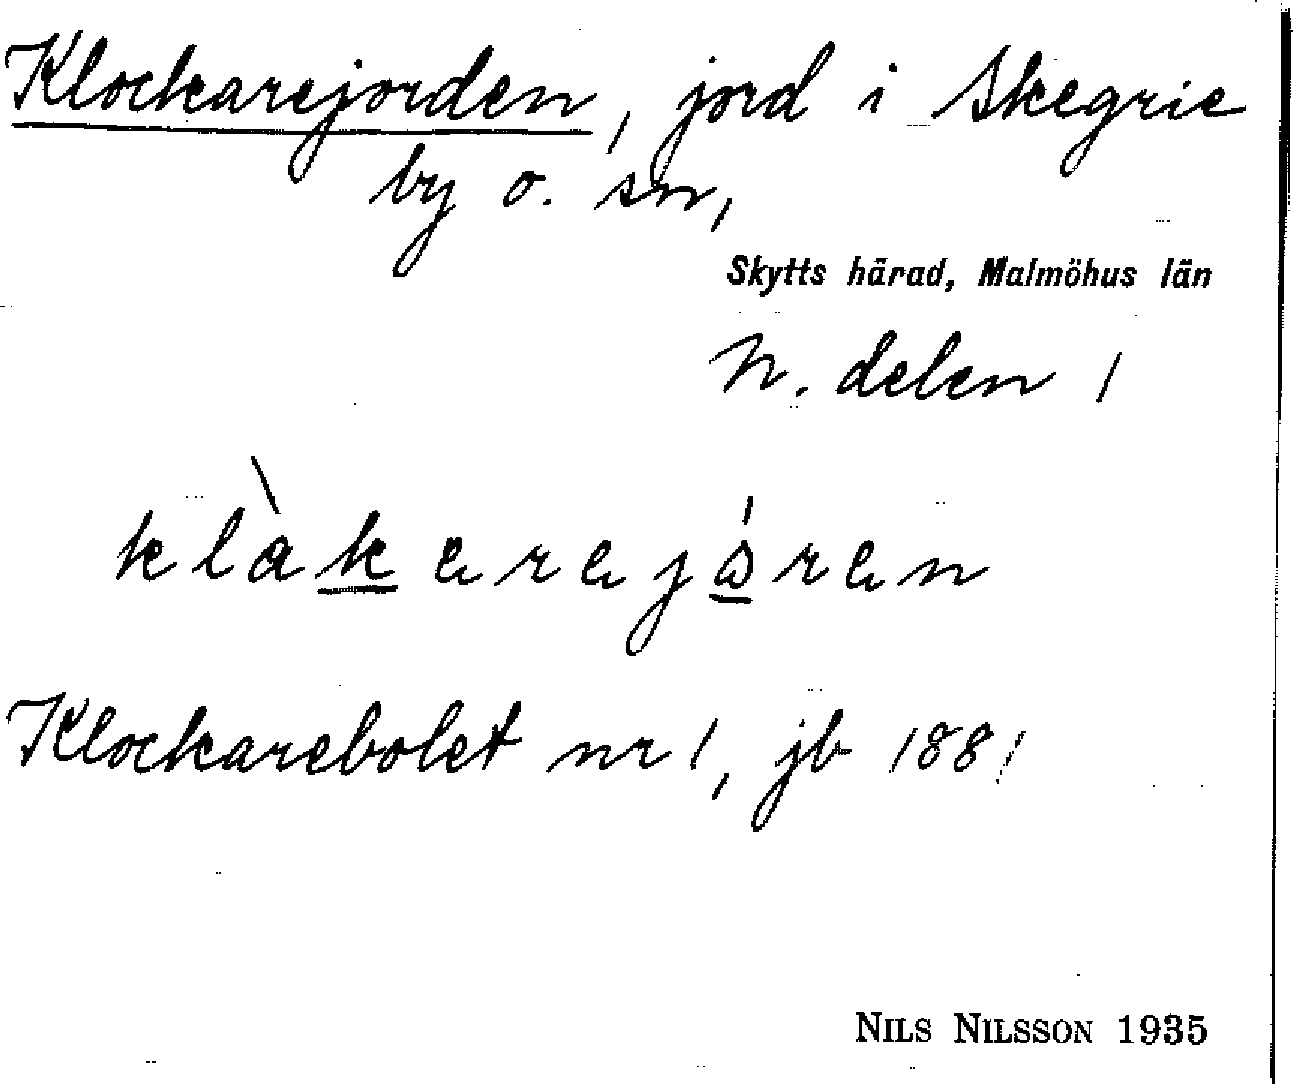 Klockarejorden, jord i Skegrie
by o. sn,
Skytts härad, Malmöhus län
N. delen 1
klàkerejǻren
Klockarebolet nr 1, jb 1881
NILS NILSSON 1935